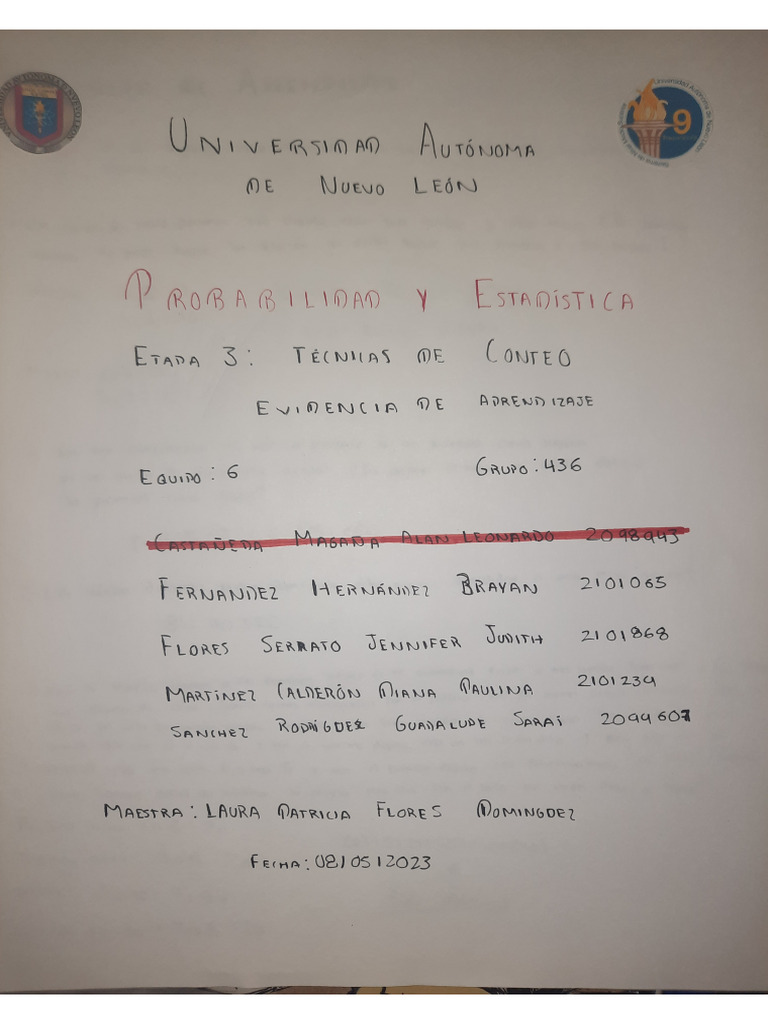 UNIVERSIDAD AUTÓNOMA
DE NUEVO LEÓN
PROBABILIDAD Y ESTADÍSTICA
ETAPA 3: TÉCNICAS DE CONTEO
EVIDENCIA DE APRENDIZAJE
EQUIPO: 6 GRUPO: 436
CASTAÑEDA MAGAÑA ALAN LEONARDO 2098943
FERNANDEZ HERNÁNDEZ BRAYAN 2101065
FLORES SERRATO JENNIFER JUDITH 2101868
MARTÍNEZ CALDERÓN DIANA PAULINA 2101239
SANCHEZ RODRÍGUEZ GUADALUPE SARAI 2094607
MAESTRA: LAURA PATRICIA FLORES DOMINGUEZ
FECHA: 08/05/2023
9